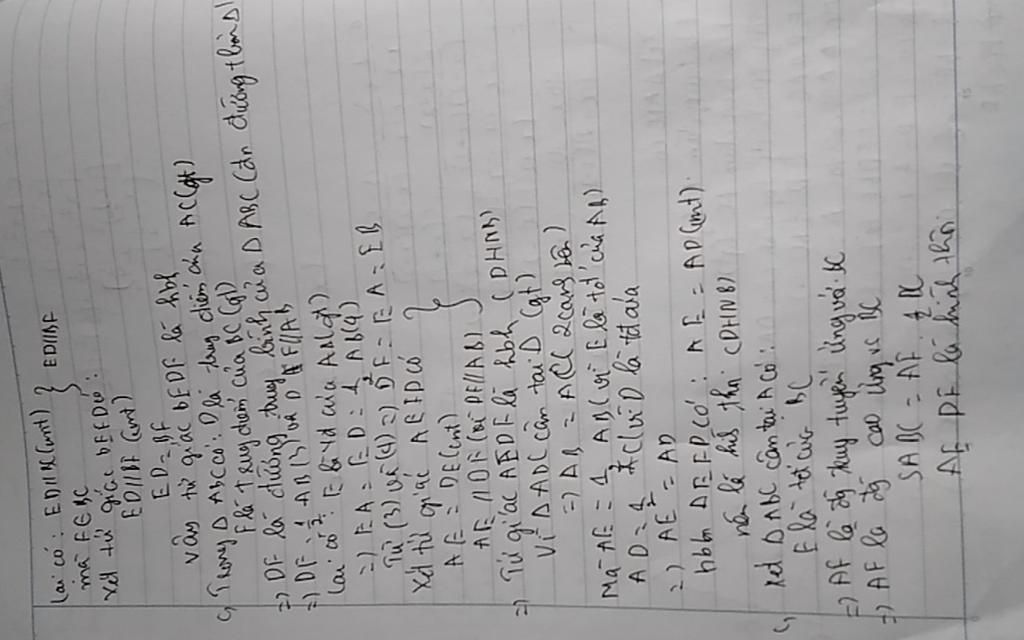 Lại có: ED//BC (cmt) } ED//BF
mà F∈BC
Xét tứ giác BEDF có:
ED//BF (cmt)
ED = BF
vậy tứ giác BEDF là hbh
c, Trong Δ ABC có: D là trung điểm của AC (gt)
F là trung điểm của BC (gt)
=> DF là đường trung bình của Δ ABC (đn đường tbình Δ)
=> DF = 1/2 AB (3) và DF//AB
Lại có: E là tđ của AB (gt)
=> EA = ED = 1/2 AB (4)
Từ (3) và (4) => DF = EA = EB
Xét tứ giác AEFD có }
AE = DF (cmt)
AE // DF (vì DF//AB)
=> Tứ giác AEDF là hbh (DHNB)
Vì Δ ABC cân tại A (gt)
=> AB = AC (2 cạnh bên)
Mà AE = 1/2 AB (vì E là tđ của AB)
AD = 1/2 AC (vì D là tđ của
=> AE = AD
hbh AEFD có: AE = AD (cmt).
nên là hình thoi (DHNB)
c, Xét Δ ABC cân tại A có:
F là tđ của BC
=> AF là đg trung tuyến ứng với BC
=> AF là đg cao ứng vs BC
SABC = AF . 1/2 BC
AE DF là hình thoi.